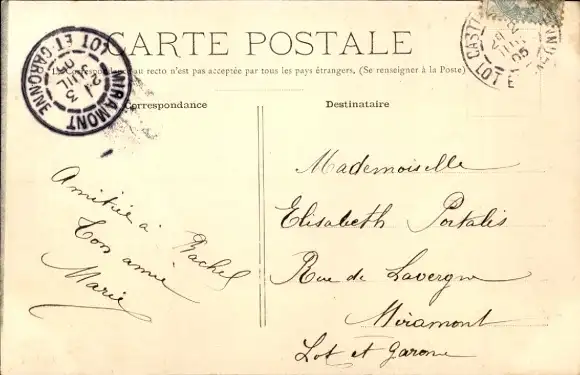 CARTE POSTALE
La Correspondance au recto n'est pas acceptée par tous les pays étrangers. (Se renseigner à la Poste)
Correspondance
Destinataire
MIRAMONT
LOT ET-GARONNE
3
21
JUIL
05
LOT ET
05
Amitiée à Rachel
Ton amie
Marie
Mademoiselle
Elisabeth Portalis
Rue de Lavergne
Miramont
Lot et Garonne